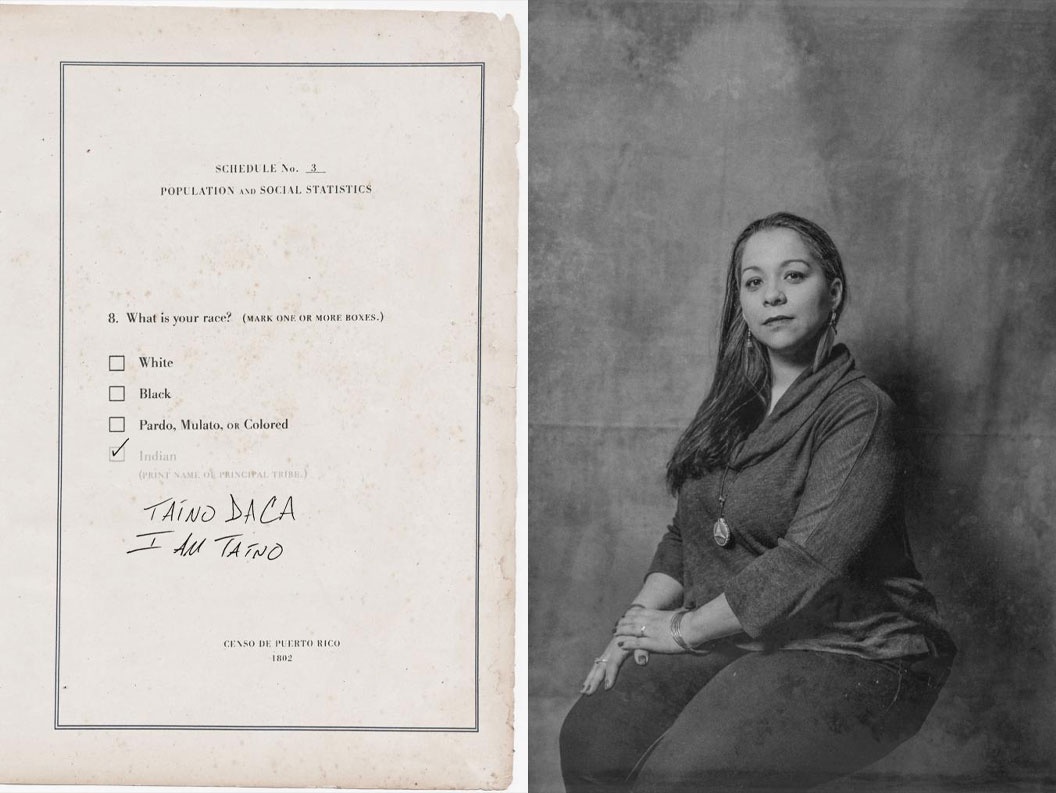 SCHEDULE No. 3
POPULATION AND SOCIAL STATISTICS
8. What is your race? (MARK ONE OR MORE BOXES.)
White
Black
Pardo, Mulato, OR Colored
Indian
(PRINT NAME OF PRINCIPAL TRIBE.)
TAÍNO DACA
I AM TAÍNO
CENSO DE PUERTO RICO
1802